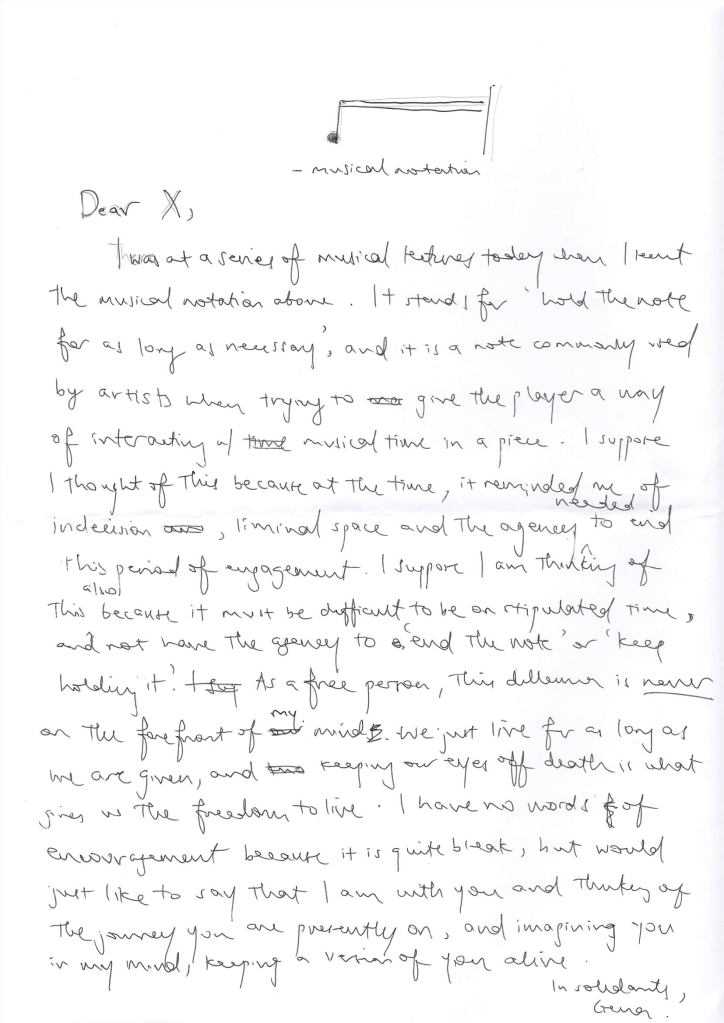 - musical notation
Dear X,
I was at a series of musical lectures today when I learnt
the musical notation above. It stands for 'hold the note
for as long as necessary', and it is a note commonly used
by artists when trying to give the player a way
of interacting w/ time musical time in a piece. I suppose
I thought of this because at the time, it reminded me of
indecision, liminal space and the agency needed to end
this period of engagement. I suppose I am thinking of
this also because it must be difficult to be on stipulated time,
and not have the agency to 'end the note' or 'keep
holding it'. As a free person, this dilemma is never
on the forefront of my mind. We just live for as long as
we are given, and keeping our eyes off death is what
gives us the freedom to live. I have no words of
encouragement because it is quite bleak, but would
just like to say that I am with you and thinking of
the journey you are presently on, and imagining you
in my mind, keeping a version of you alive.
In solidarity,